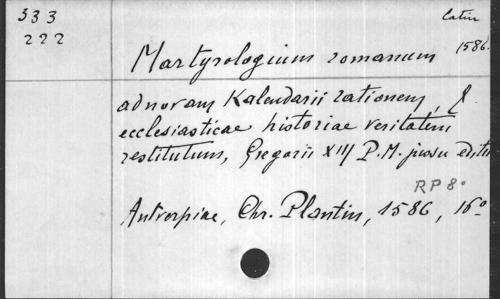 533
222
Latin
Martyrologium romanum 1586.
ad novam Kalendarii rationem, &
ecclesiasticae historiae veritatem
restitutum, Gregorii XIII P.M. jussu editu
RP 8°
Antverpiae, Chr. Plantin, 1586, 16°